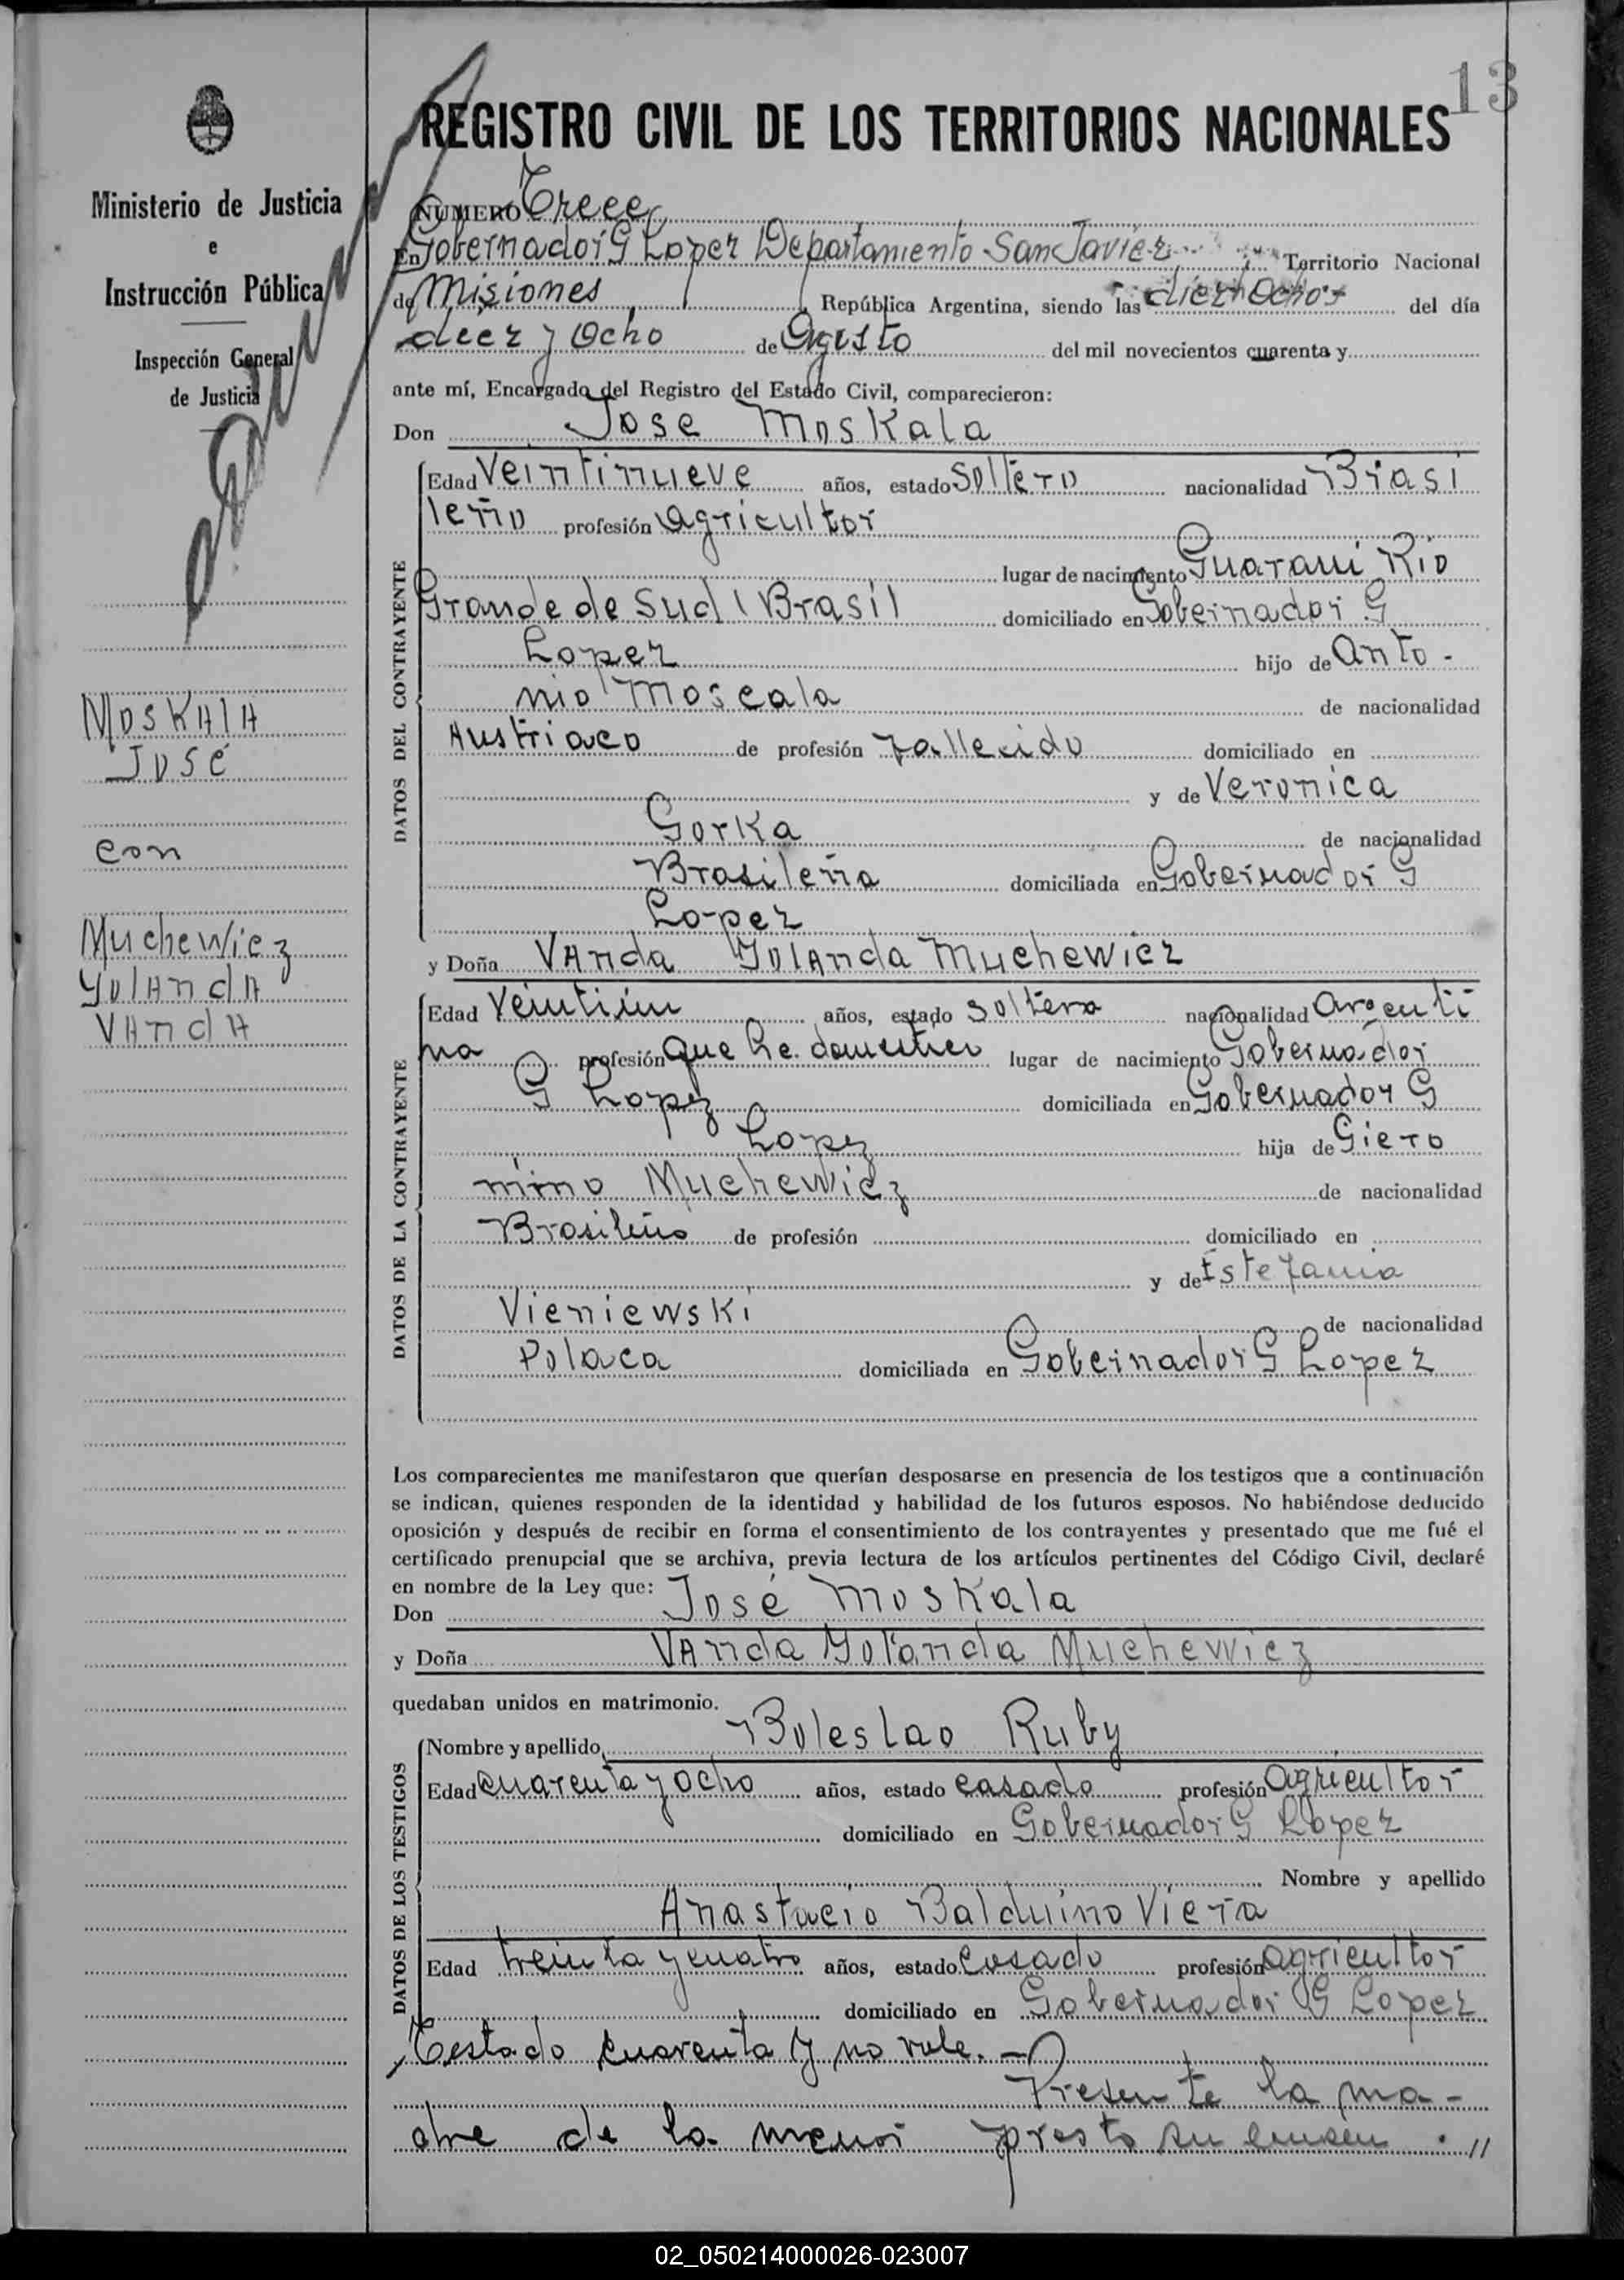 13
REGISTRO CIVIL DE LOS TERRITORIOS NACIONALES
Ministerio de Justicia
e
Instrucción Pública
Inspección General
de Justicia
NUMERO Trece
En Gobernador G Lopez Departamento San Javier Territorio Nacional
de Misiones República Argentina, siendo las diez y Ocho del día
diez y Ocho de Agosto del mil novecientos cuarenta y
ante mí, Encargado del Registro del Estado Civil, comparecieron:
Don Jose Moskala
DATOS DEL CONTRAYENTE
Edad Veintinueve años, estado Soltero nacionalidad Brasi
leño profesión Agricultor
lugar de nacimiento Guarani Rio
Grande de Sud (Brasil domiciliado en Gobernador G
Lopez hijo de Anto-
nio Moscala de nacionalidad
Austriaco de profesión fallecido domiciliado en
y de Veronica
Gorka de nacionalidad
Brasileña domiciliada en Gobernador G
Lopez
MosKAlA
José
con
Muchewicz
YolAndA
VAndA
y Doña VAnda YolAnda Muchewicz
DATOS DE LA CONTRAYENTE
Edad Veintiún años, estado Soltera nacionalidad Argenti
na profesión Que he. domestico lugar de nacimiento Gobernador
G Lopez domiciliada en Gobernador G
Lopez hija de Giero
nimo Muchewicz de nacionalidad
Brasileño de profesión domiciliado en
y de Estefania
Vieniewski de nacionalidad
Polaca domiciliada en Gobernador G Lopez
Los comparecientes me manifestaron que querían desposarse en presencia de los testigos que a continuación
se indican, quienes responden de la identidad y habilidad de los futuros esposos. No habiéndose deducido
oposición y después de recibir en forma el consentimiento de los contrayentes y presentado que me fué el
certificado prenupcial que se archiva, previa lectura de los artículos pertinentes del Código Civil, declaré
en nombre de la Ley que:
Don José Moskala
y Doña VAnda Yolanda Muchewicz
quedaban unidos en matrimonio.
DATOS DE LOS TESTIGOS
Nombre y apellido Boleslao Ruby
Edad cuarenta y ocho años, estado casado profesión Agricultor
domiciliado en Gobernador G Lopez
Nombre y apellido
Anastacio Balduino Viera
Edad treinta y cuatro años, estado Casado profesión Agricultor
domiciliado en Gobernador G Lopez
Testado cuarenta y no vale.-
Presente la ma-
dre de la menor presto su consen //
02_050214000026-023007